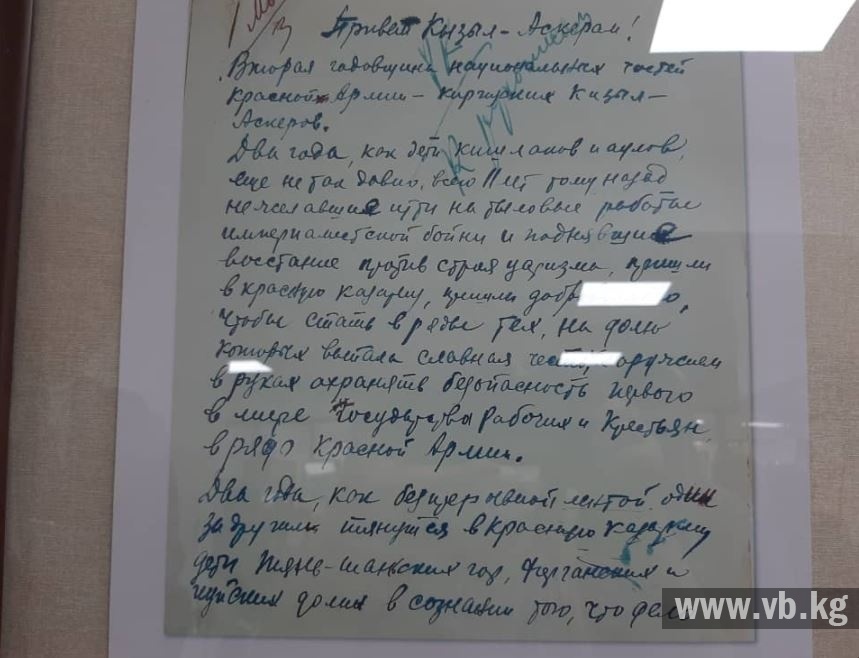 Привет Кызыл-Аскерам!
Вторая годовщина национальных частей
Красной Армии - киргизских Кизыл-
Аскеров.
Два года, как дети кишлаков и аулов,
еще не так давно, всего 11 лет тому назад
не желавшие идти на тыловые работы
империалистской бойни и поднявшие
восстание против строя царизма, пришли
в красную казарму, пришли
чтобы стать в ряды тех, на долю
которых выпала славная честь, с оружием
в руках охранять безопасность первого
в мире Государства Рабочих и Крестьян,
в ряды Красной Армии.
Два года, как беспрерывной лентой один
за другим тянутся в Красную Казарму
дети Тянь-шаньских гор, Ферганских и
Чуйских долин в сознании того, что
www.vb.kg